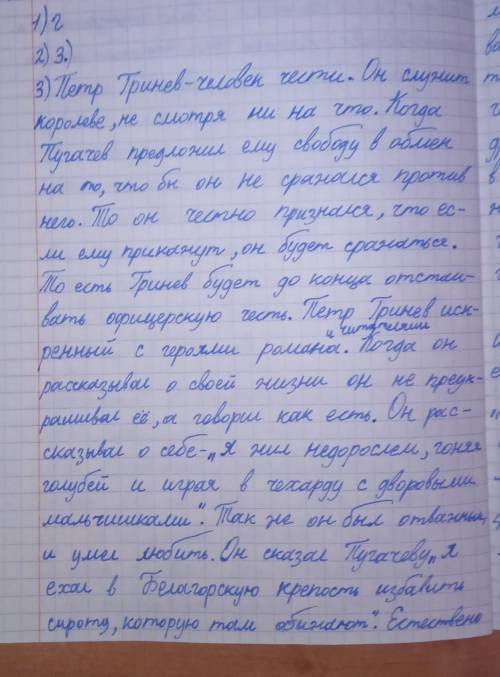 1) г
2) 3.)
3) Петр Гринев-человек чести. Он служит
королеве, не смотря ни на что. Когда
Пугачев предложил ему свободу в обмен
на то, что бы он не сражался против
него. То он честно признался, что ес-
ли ему прикажут, он будет сражаться.
То есть Гринев будет до конца отстаи-
вать офицерскую честь. Петр Гринев иск-
и читателями
ренный с героями романа. Когда он
рассказывал о своей жизни он не преук-
рашивал её, а говорил как есть. Он рас-
сказывал о себе- „Я жил недорослем, гоняя
голубей и играя в чехарду с дворовыми
мальчишками". Так же он был отважным
и умел любить. Он сказал Пугачеву „Я
ехал в Белагорскую крепость избавить
сироту, которую там обижают". Естествено